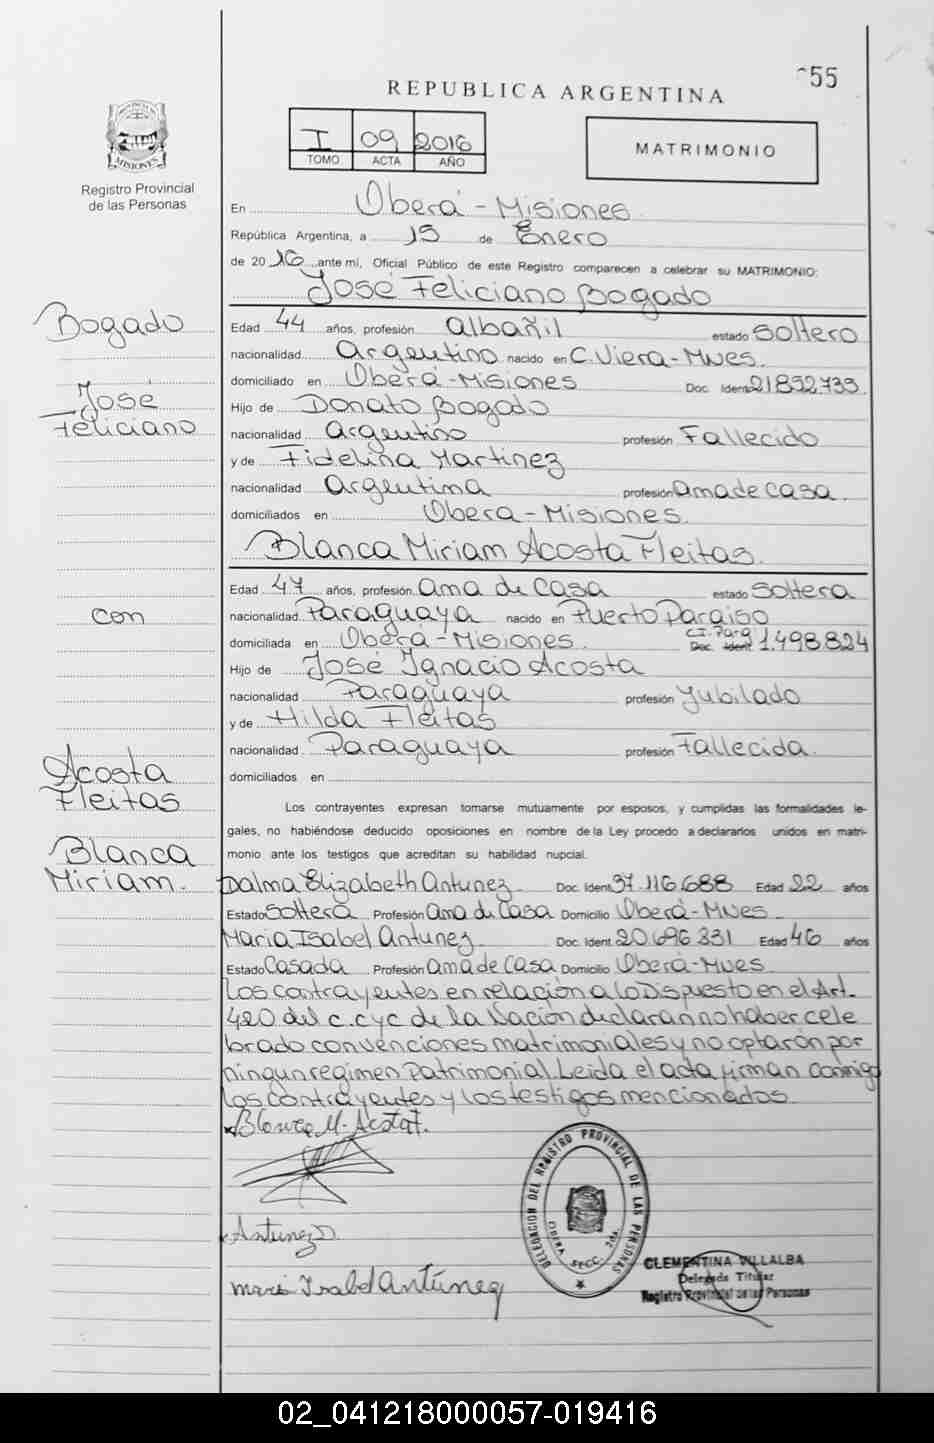 055
REPUBLICA ARGENTINA
I 09 2016
TOMO ACTA AÑO
MATRIMONIO
PROVINCIA DE
MISIONES
Registro Provincial
de las Personas
En Oberá - Misiones
República Argentina, a 15 de Enero
de 2016 ante mí, Oficial Público de este Registro comparecen a celebrar su MATRIMONIO:
José Feliciano Bogado
Bogado
José
Feliciano
con
Acosta
Fleitas
Blanca
Miriam.
Edad 44 años, profesión Albañil estado Soltero
nacionalidad Argentino nacido en C. Viera - Mnes.
domiciliado en Oberá - Misiones Doc. Ident. 21.852.739
Hijo de Donato Bogado
nacionalidad Argentino profesión Fallecido
y de Fidelina Martinez
nacionalidad Argentina profesión Ama de casa.
domiciliados en Obera - Misiones.
Blanca Miriam Acosta Fleitas.
Edad 47 años, profesión Ama de Casa estado Soltera
nacionalidad Paraguaya nacido en Puerto Paraiso
domiciliada en Oberá - Misiones. C.I. Parg Doc. Ident 1.498.824
Hijo de José Ignacio Acosta
nacionalidad Paraguaya profesión Jubilado
y de Hilda Fleitas
nacionalidad Paraguaya profesión Fallecida.
domiciliados en
Los contrayentes expresan tomarse mutuamente por esposos, y cumplidas las formalidades le-
gales, no habiéndose deducido oposiciones en nombre de la Ley procedo a declararlos unidos en matri-
monio ante los testigos que acreditan su habilidad nupcial.
Dalma Elizabeth Antunez Doc. Ident. 37.116.688 Edad 22 años
Estado Soltera Profesión Ama de Casa Domicilio Oberá - Mnes.
Maria Isabel Antunez Doc. Ident. 20.696.331 Edad 46 años
Estado Casada Profesión Ama de Casa Domicilio Oberá - Mnes
Los contrayentes en relación a lo Dispuesto en el Art.
420 del c.c y c de la Nación declaran no haber cele
brado convenciones matrimoniales y no optarón por
ningun regimen Patrimonial. Leida el acta firman conmigo
Los contrayentes y los testigos mencionados.
Blanca M. Acosta F.
Antunez D.
Maria Isabel Antúnez
DELEGACION DEL REGISTRO PROVINCIAL DE LAS PERSONAS
OBERA SECC. 2da.
CLEMENTINA VILLALBA
Delegada Titular
Registro Provincial de las Personas
02_041218000057-019416